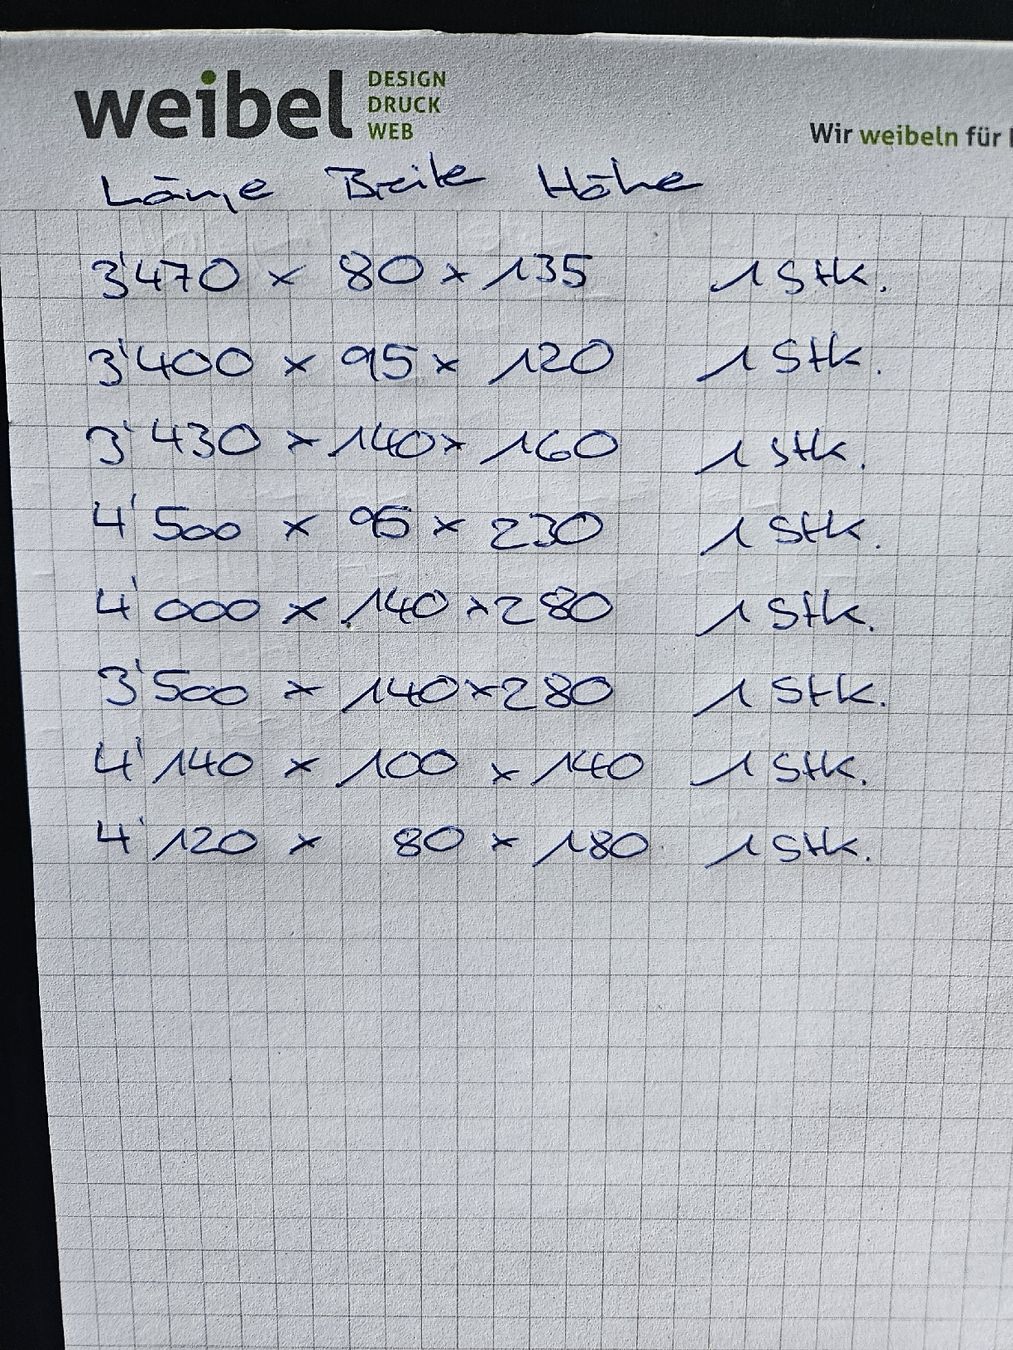 weibel DESIGN
DRUCK
WEB
Wir weibeln für
Länge Breite Höhe
3'470 x 80 x 135 1 Stk.
3'400 x 95 x 120 1 Stk.
3'430 x 140 x 160 1 Stk.
4'500 x 95 x 230 1 Stk.
4'000 x 140 x 280 1 Stk.
3'500 x 140 x 280 1 Stk.
4'140 x 100 x 140 1 Stk.
4'120 x 80 x 180 1 Stk.